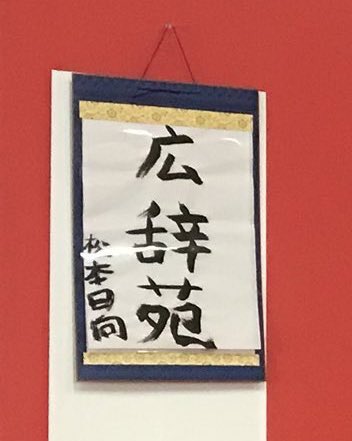 広辞苑
松本日向